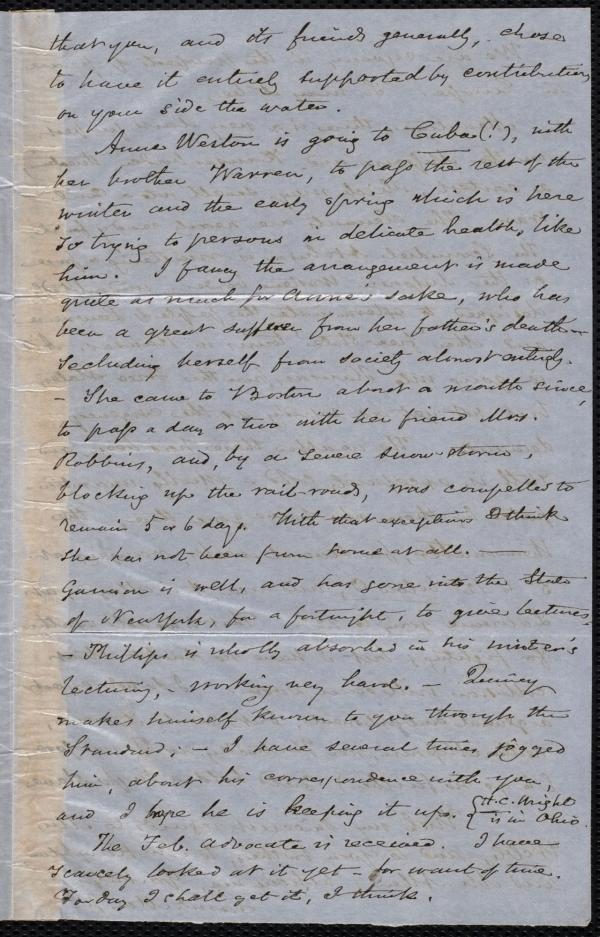 that you, and its friends generally, chose
to have it entirely supported by contributions
on your side the water.
Anne Weston is going to Cuba (!), with
her brother Warren, to pass the rest of the
winter and the early spring which is here
so trying to persons in delicate health, like
him. I fancy the arrangement is made
quite as much for Anne's sake, who has
been a great sufferer from her father's death—
secluding herself from society almost entirely.
– She came to Boston about a month since,
to pass a day or two with her friend Mrs.
Robbins, and, by a severe snow-storm,
blocking up the rail-roads, was compelled to
remain 5 or 6 days. With that exception I think
she has not been from home at all. —
Garrison is well, and has gone into the State
of New York, for a fortnight, to give lectures.
– Phillips is wholly absorbed in his winter's
lecturing, – working very hard. – Quincy
makes himself known to you through the
Standard; – I have several times jogged
him, about his correspondence with you,
and I hope he is keeping it up. {H. C. Wright
is in Ohio.
The Feb. Advocate is received. I have
scarcely looked at it yet – for want of time.
To-day I shall get it, I think.